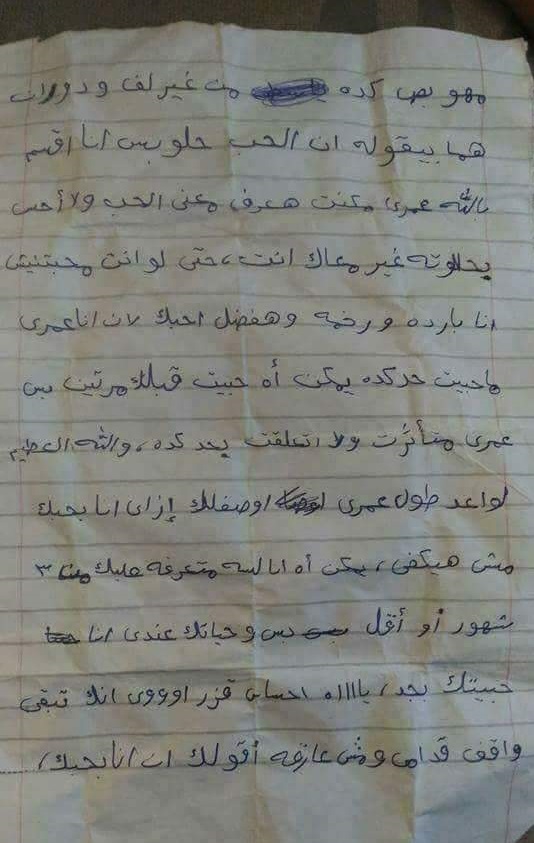 مهو بص كده من غير لف ودوران
هما بيقوله ان الحب حلو بس انا اقسم
بالله عمرى مكنت هعرف معنى الحب ولا أحس
بحلاوته غير معاك انت، حتى لو انت محبتنيش
انا بارده ورخمه وهفضل احبك لان انا عمرى
ماحبيت حد كده يمكن أه حبيت قبلك مرتين بس
عمرى متأثرت ولا اتعلقت بحد كده، والله العظيم
لو اعد طول عمرى اوصفلك إزاى انا بحبك
مش هيكفى، يمكن أه انا لسه متعرفه عليك من ٣
شهور أو أقل بس وحياتك عندى انا
حبيتك بجد، ياااه احساس قزر اوووى انك تبقى
واقف قدامى ومش عارفه أقولك ان انا بحبك،